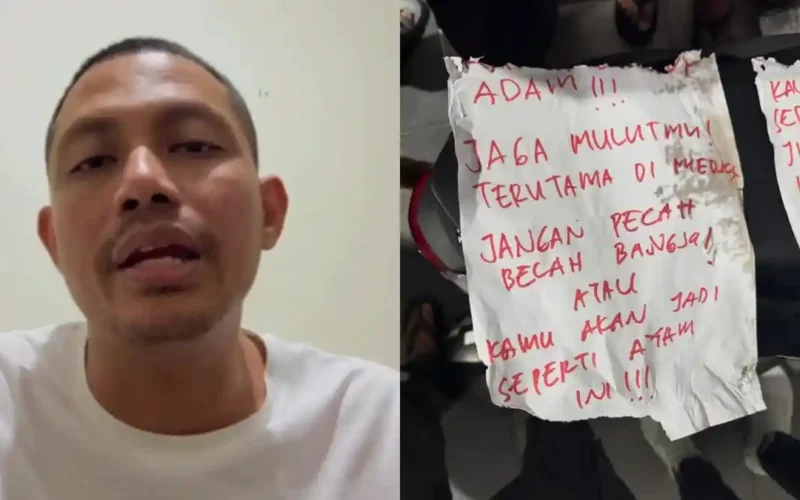 ADAM!!!
JAGA MULUTMU!
TERUTAMA DI
JANGAN PECAH
BECAH BANGSA!
ATAU
KAMU AKAN JADI
SEPERTI AYAM
INI!!!
KAU
SEP
JI